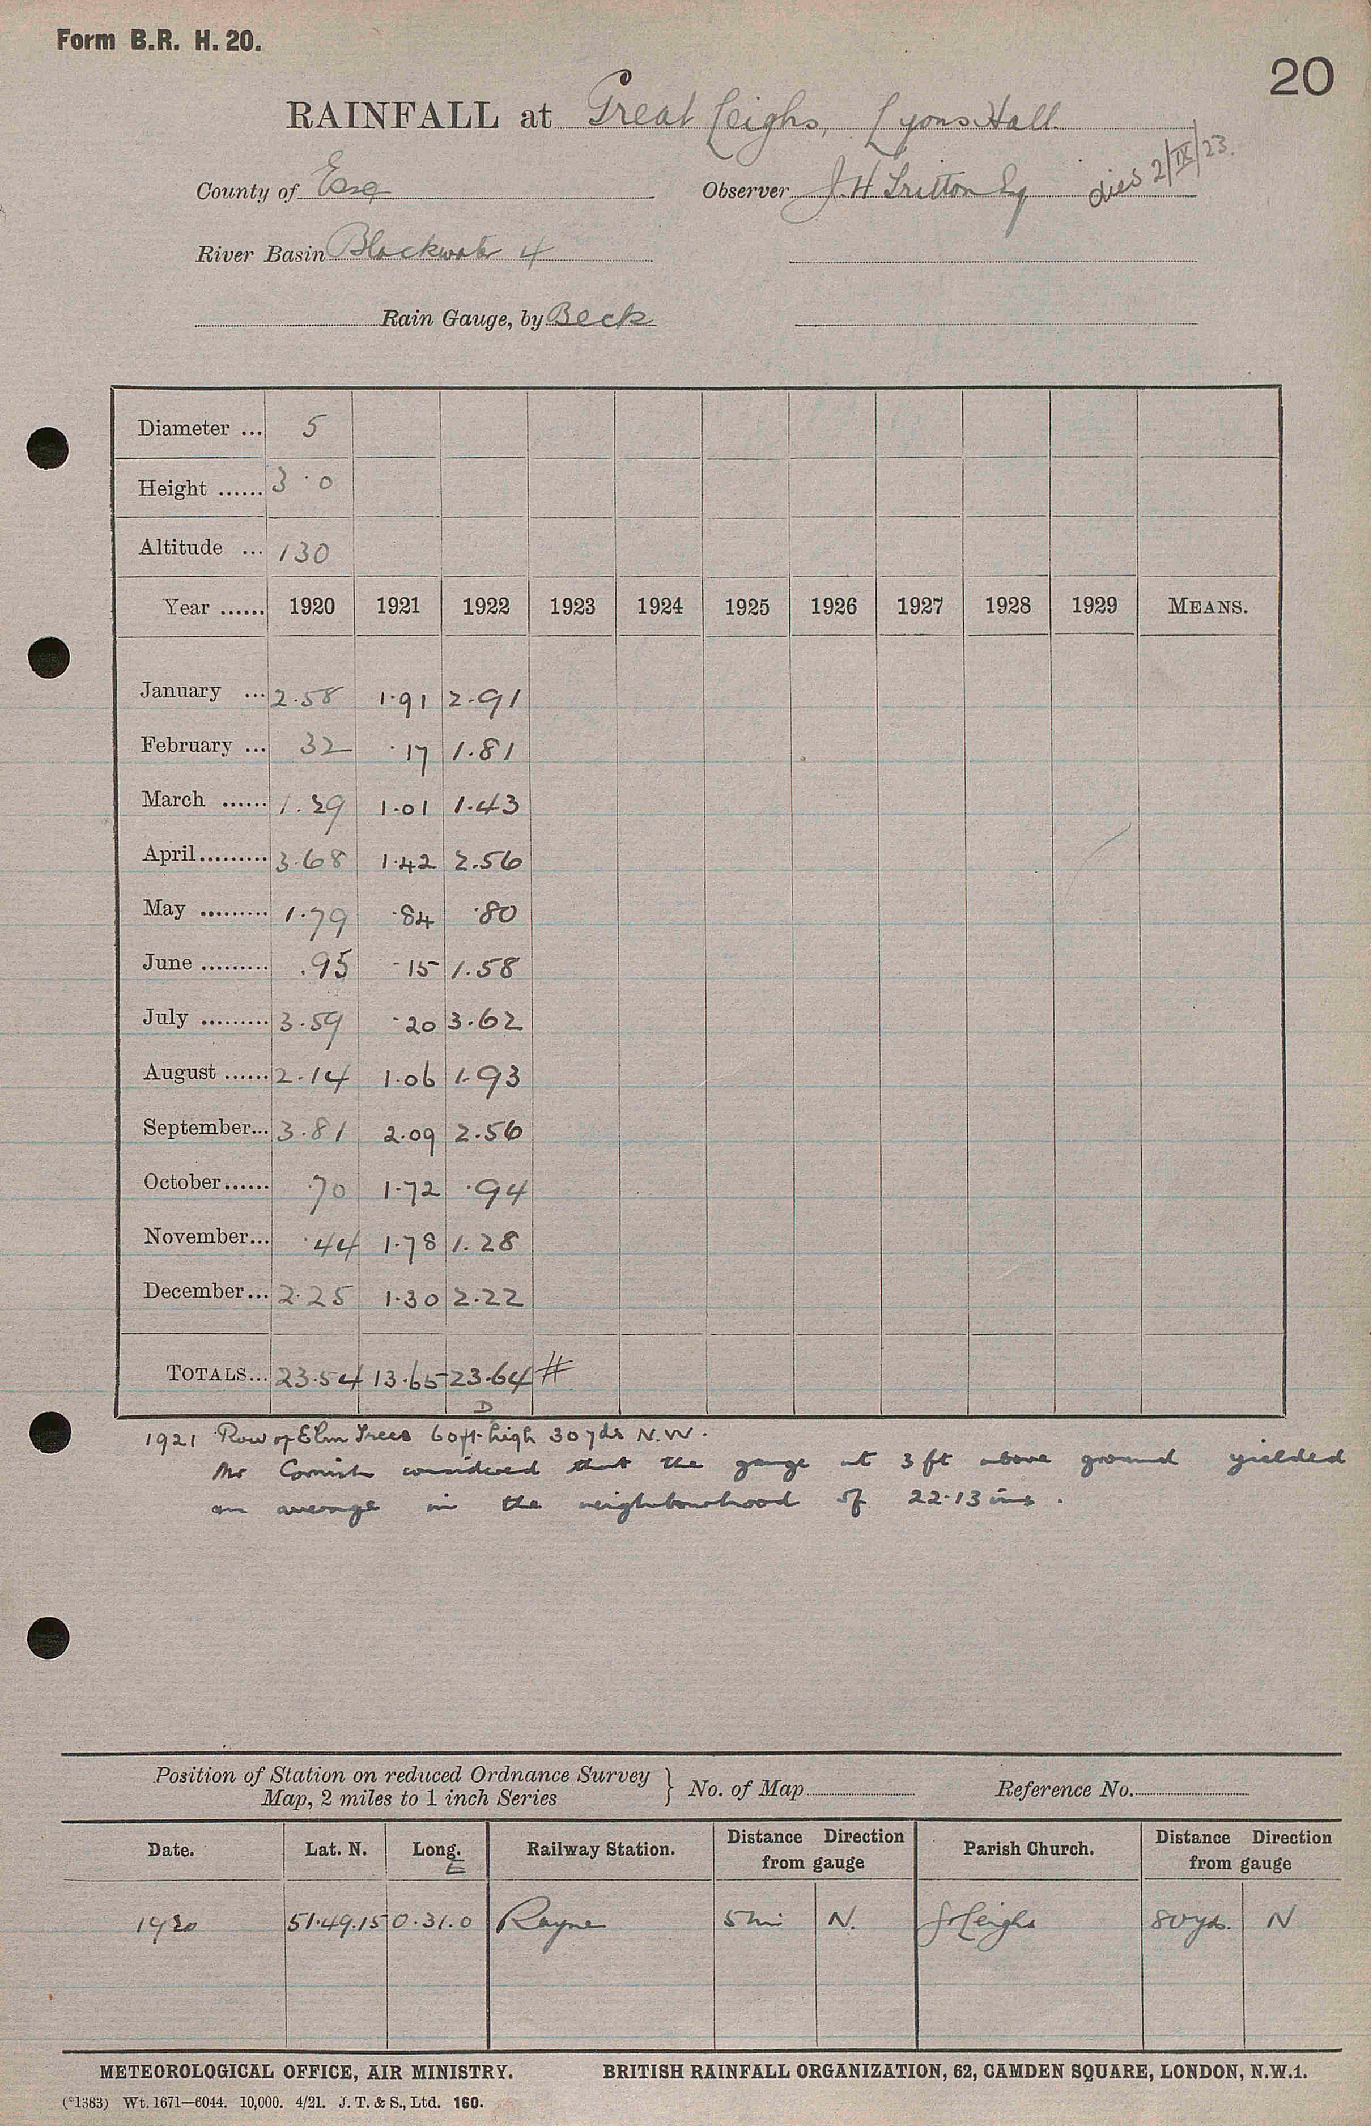 Form B.R. H. 20.
20
RAINFALL at Great Leighs, Lyons Hall
County of Essex Observer J. H. Tritton Esq died 2/IX/23.
River Basin Blackwater 4
Rain Gauge, by Beck
Diameter ... 5
Height ...... 3 · 0
Altitude ... 130
Year ...... 1920 1921 1922 1923 1924 1925 1926 1927 1928 1929 MEANS.
January ... 2.58 1.91 2.91
February ... 32 .17 1.81
March ...... 1.29 1.01 1.43
April ......... 3.68 1.42 2.56
May ......... 1.79 .84 .80
June ......... .95 .15 1.58
July ......... 3.59 .20 3.62
August ...... 2.14 1.06 1.93
September... 3.81 2.09 2.56
October ...... .70 1.72 .94
November... .44 1.78 1.28
December... 2.25 1.30 2.22
TOTALS... 23.54 13.65 23.64 #
D
1921 Row of Elm Trees 60ft high 30 yds N.W.
Mr Cornish considered that the gauge at 3 ft above ground yielded
an average in the neighbourhood of 22.13 ins.
Position of Station on reduced Ordnance Survey
Map, 2 miles to 1 inch Series } No. of Map Reference No.
Date. Lat. N. Long. E Railway Station. Distance Direction from gauge Parish Church. Distance Direction from gauge
1920 51.49.15 0.31.0 Rayne 5 mi N. Gt Leighs 80 yds. N
METEOROLOGICAL OFFICE, AIR MINISTRY. BRITISH RAINFALL ORGANIZATION, 62, CAMDEN SQUARE, LONDON, N.W.1.
(*1383) Wt. 1671—6044. 10,000. 4/21. J. T. & S., Ltd. 160.